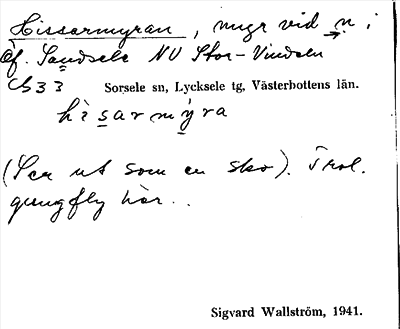 Hissarmyran, myr vid n i
öf. Sandsele NV Stor-Vindeln
C533 Sorsele sn, Lycksele tg, Västerbottens län.
hìsarmýra
(Ser ut som en sko). Trol.
gungfly här..
Sigvard Wallström, 1941.